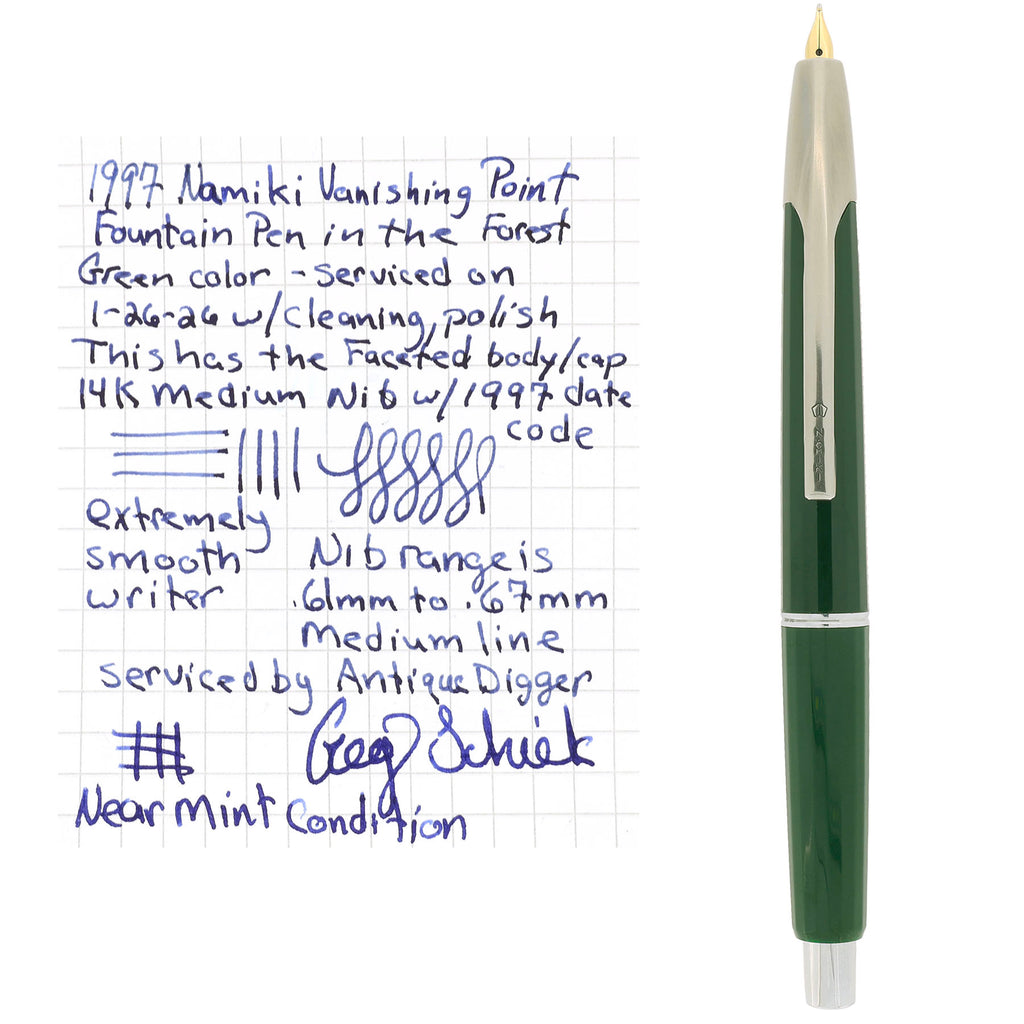 1997 Namiki Vanishing Point
Fountain Pen in the Forest
Green color - serviced on
1-26-26 w/cleaning, polish
This has the Faceted body/cap
14K Medium Nib w/1997 date
code
extremely
smooth
writer
Nib range is
.61mm to .67mm
Medium line
serviced by Antique Digger
Greg Schiek
Near Mint Condition